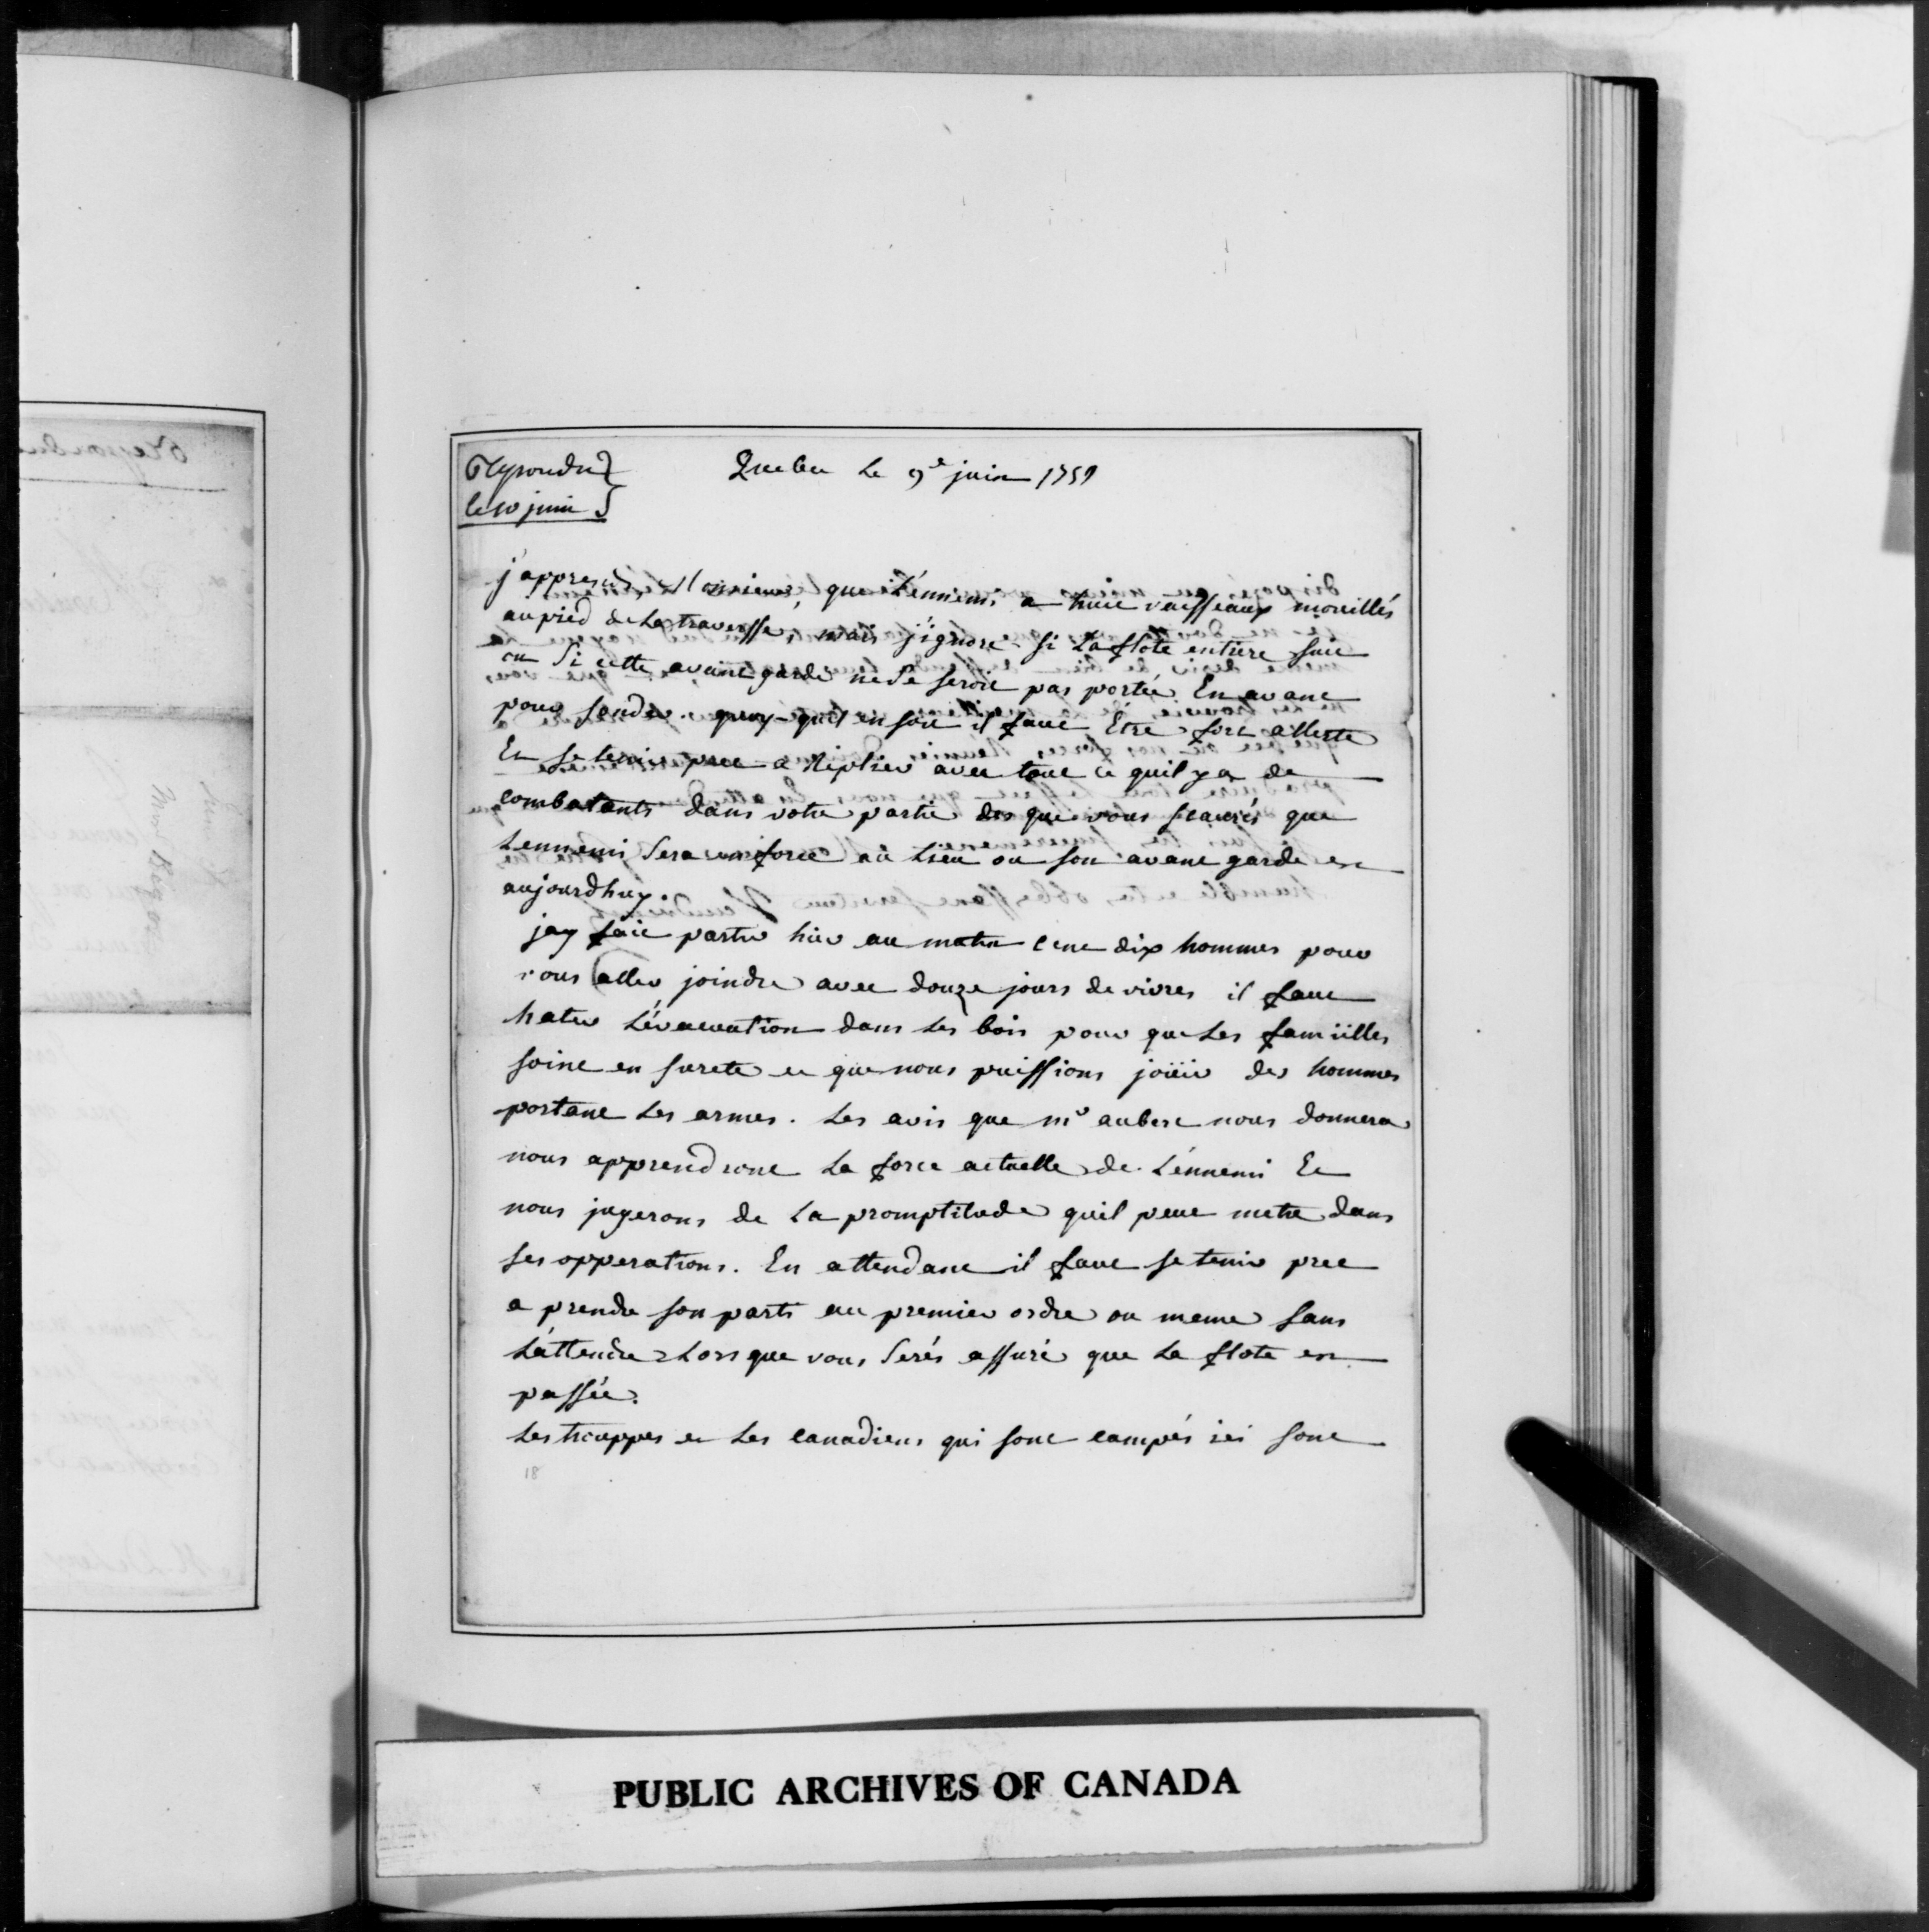 Repondu
le 10 juin
Quebec le 9e juin 1759
j'apprends, Monsieur, que L'ennemi a huit vaisseaux mouillés
au pied de La traverse, mais j'ignore si La flote entiere suit
ou si cette avant garde ne se seroit pas portée En avant
pour sonder. quoy-quil en soit il faut Etre fort allerte
Et se tenir pret a Replier avec tout ce quil y a de
combatants dans votre partie des que vous scaurés que
Lennemi sera en force au lieu ou son avant garde est
aujourdhuy.
jay fait partir hier au matin cent dix hommes pour
vous aller joindre avec douze jours de vivres il faut
hater L'évacuation dans les bois pour que Les familles
soint en sureté et que nous puissions joüir des hommes
portant Les armes. Les avis que mr aubert nous donnera
nous apprendront La force actuelle de L'énnemi Et
nous jugerons de La promptitude quil peut metre dans
ses opperations. En attendant il faut se tenir pret
a prendre son parti au premier ordre ou meme sans
L'attendre Lors que vous serés assuré que La flote est
passée.
Les trouppes et Les Canadiens qui sont campés ici sont
18
PUBLIC ARCHIVES OF CANADA